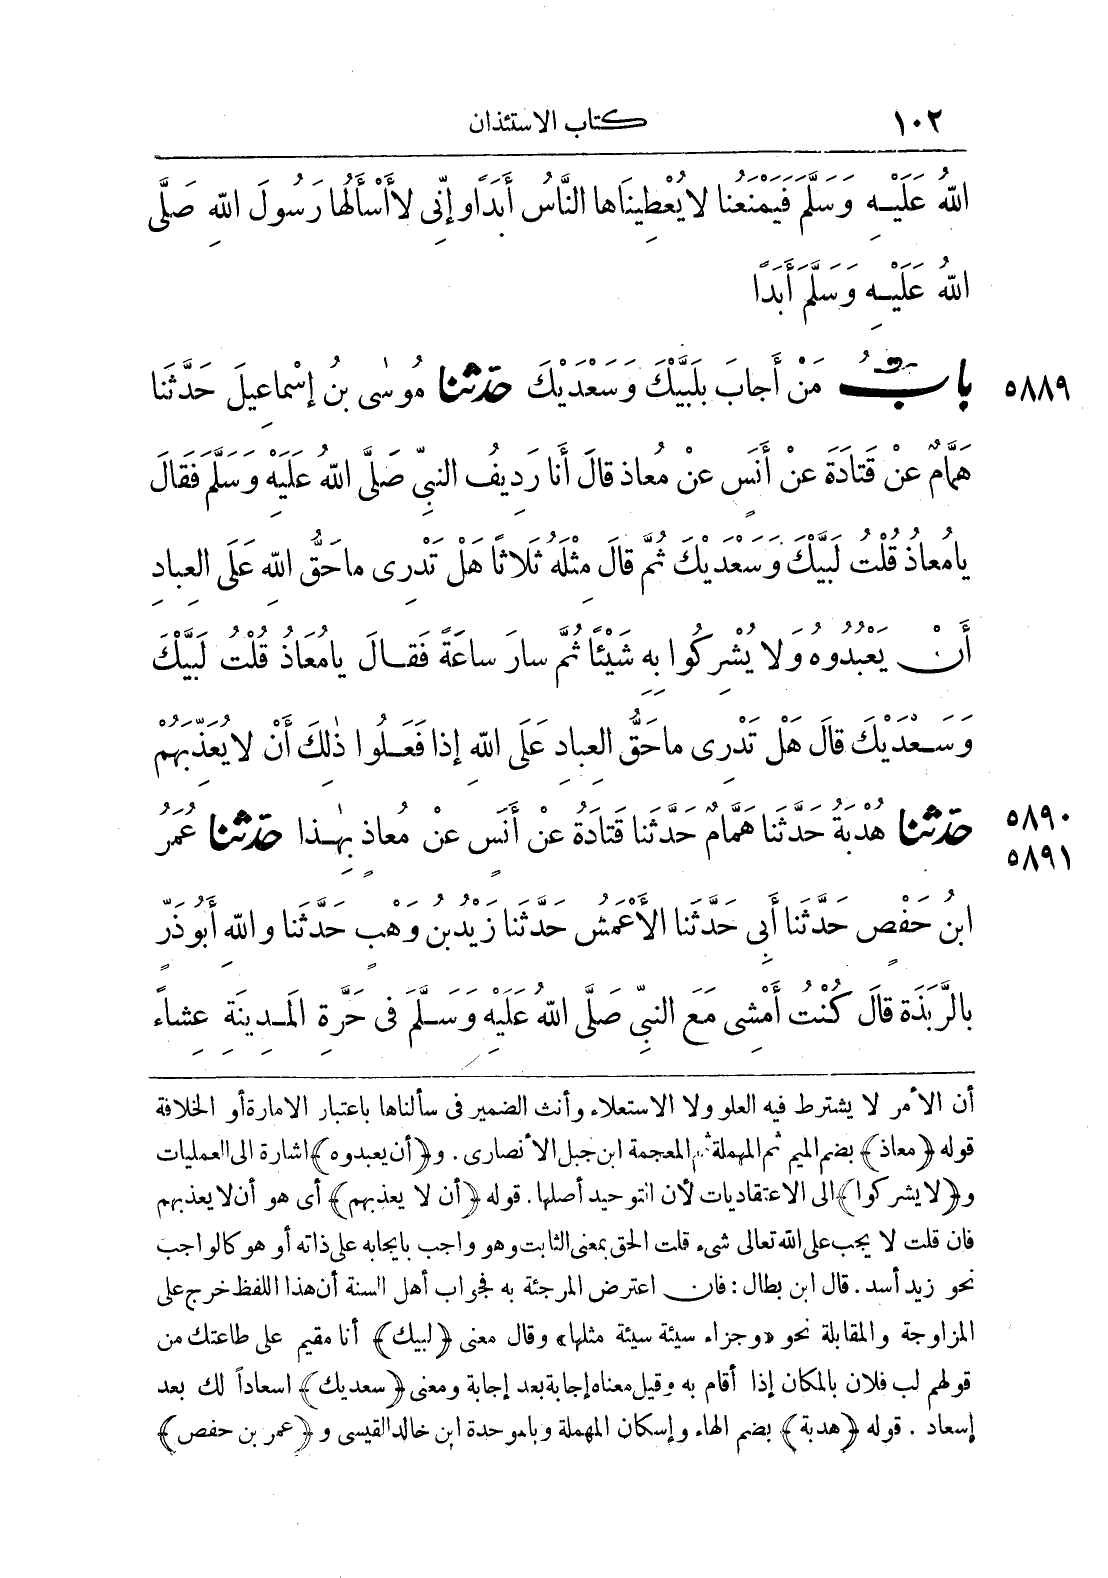 ١٠٢ كتاب الاستئذان
اللهُ عَلَيْهِ وَسَلَّمَ فَيَمْنَعُنَا لا يُعْطِينَاها النَّاسُ أَبَدًا وإِنِّى لا أَسْأَلُها رَسُولَ اللهِ صَلَّى
اللهُ عَلَيْهِ وَسَلَّمَ أَبَدًا
٥٨٨٩ بابُ مَنْ أَجابَ بِلَبَّيْكَ وَسَعْدَيْكَ حدّثنا مُوسٰى بنُ إِسْماعِيلَ حَدَّثَنا
هَمَّامٌ عنْ قَتادَةَ عنْ أَنَسٍ عنْ مُعاذ قالَ أَنا رَدِيفُ النبىِّ صَلَّى اللهُ عَلَيْهِ وَسَلَّمَ فَقالَ
يامُعاذُ قُلْتُ لَبَّيْكَ وَسَعْدَيْكَ ثُمَّ قالَ مِثْلَهُ ثَلاثًا هَلْ تَدْرِى ماحَقُّ اللهِ عَلَى العِبادِ
أَنْ يَعْبُدُوهُ وَلا يُشْرِكُوا بِهِ شَيْئًا ثُمَّ سارَ ساعَةً فَقالَ يامُعَاذُ قُلْتُ لَبَّيْكَ
وَسَعْدَيْكَ قالَ هَلْ تَدْرِى ماحَقُّ العِبادِ عَلَى اللهِ إِذا فَعَلُوا ذٰلِكَ أَنْ لا يُعَذِّبَهُمْ
٥٨٩٠ حدّثنا هُدْبَةُ حَدَّثَنا هَمَّامٌ حَدَّثَنا قَتادَةُ عنْ أَنَسٍ عنْ مُعاذٍ بِهٰذا حدّثنا عُمَرُ
٥٨٩١
ابنُ حَفْصٍ حَدَّثَنا أَبِى حَدَّثَنا الأَعْمَشُ حَدَّثَنا زَيْدُ بنُ وَهْبٍ حَدَّثَنا واللهِ أَبُو ذَرٍّ
بالرَّبَذَةِ قالَ كُنْتُ أَمْشِى مَعَ النبىِّ صَلَّى اللهُ عَلَيْهِ وَسَلَّمَ فى حَرَّةِ المَدِينَةِ عِشاءً
أن الأمر لا يشترط فيه العلو ولا الاستعلاء وأنث الضمير فى سألناها باعتبار الامارة أو الخلافة
قوله ﴿معاذ﴾ بضم الميم ثم المهملة ثم المعجمة ابن جبل الأنصارى . و﴿أن يعبدوه﴾ اشارة الى العمليات
و﴿لا يشركوا﴾ الى الاعتقاديات لأن التوحيد أصلها. قوله ﴿أن لا يعذبهم﴾ أى هو أن لا يعذبهم
فان قلت لا يجب على الله تعالى شىء قلت الحق بمعنى الثابت وهو واجب بايجابه على ذاته أو هو كالواجب
نحو زيد أسد . قال ابن بطال : فان اعترض المرجئة به فجواب أهل السنة أن هذا اللفظ خرج على
المزاوجة والمقابلة نحو «وجزاء سيئة سيئة مثلها» وقال معنى ﴿لبيك﴾ أنا مقيم على طاعتك من
قولهم لب فلان بالمكان إذا أقام به وقيل معناه إجابة بعد إجابة ومعنى ﴿سعديك﴾ اسعاداً لك بعد
إسعاد . قوله ﴿هدبة﴾ بضم الهاء وإسكان المهملة وبالموحدة ابن خالد القيسى و ﴿عمر بن حفص﴾